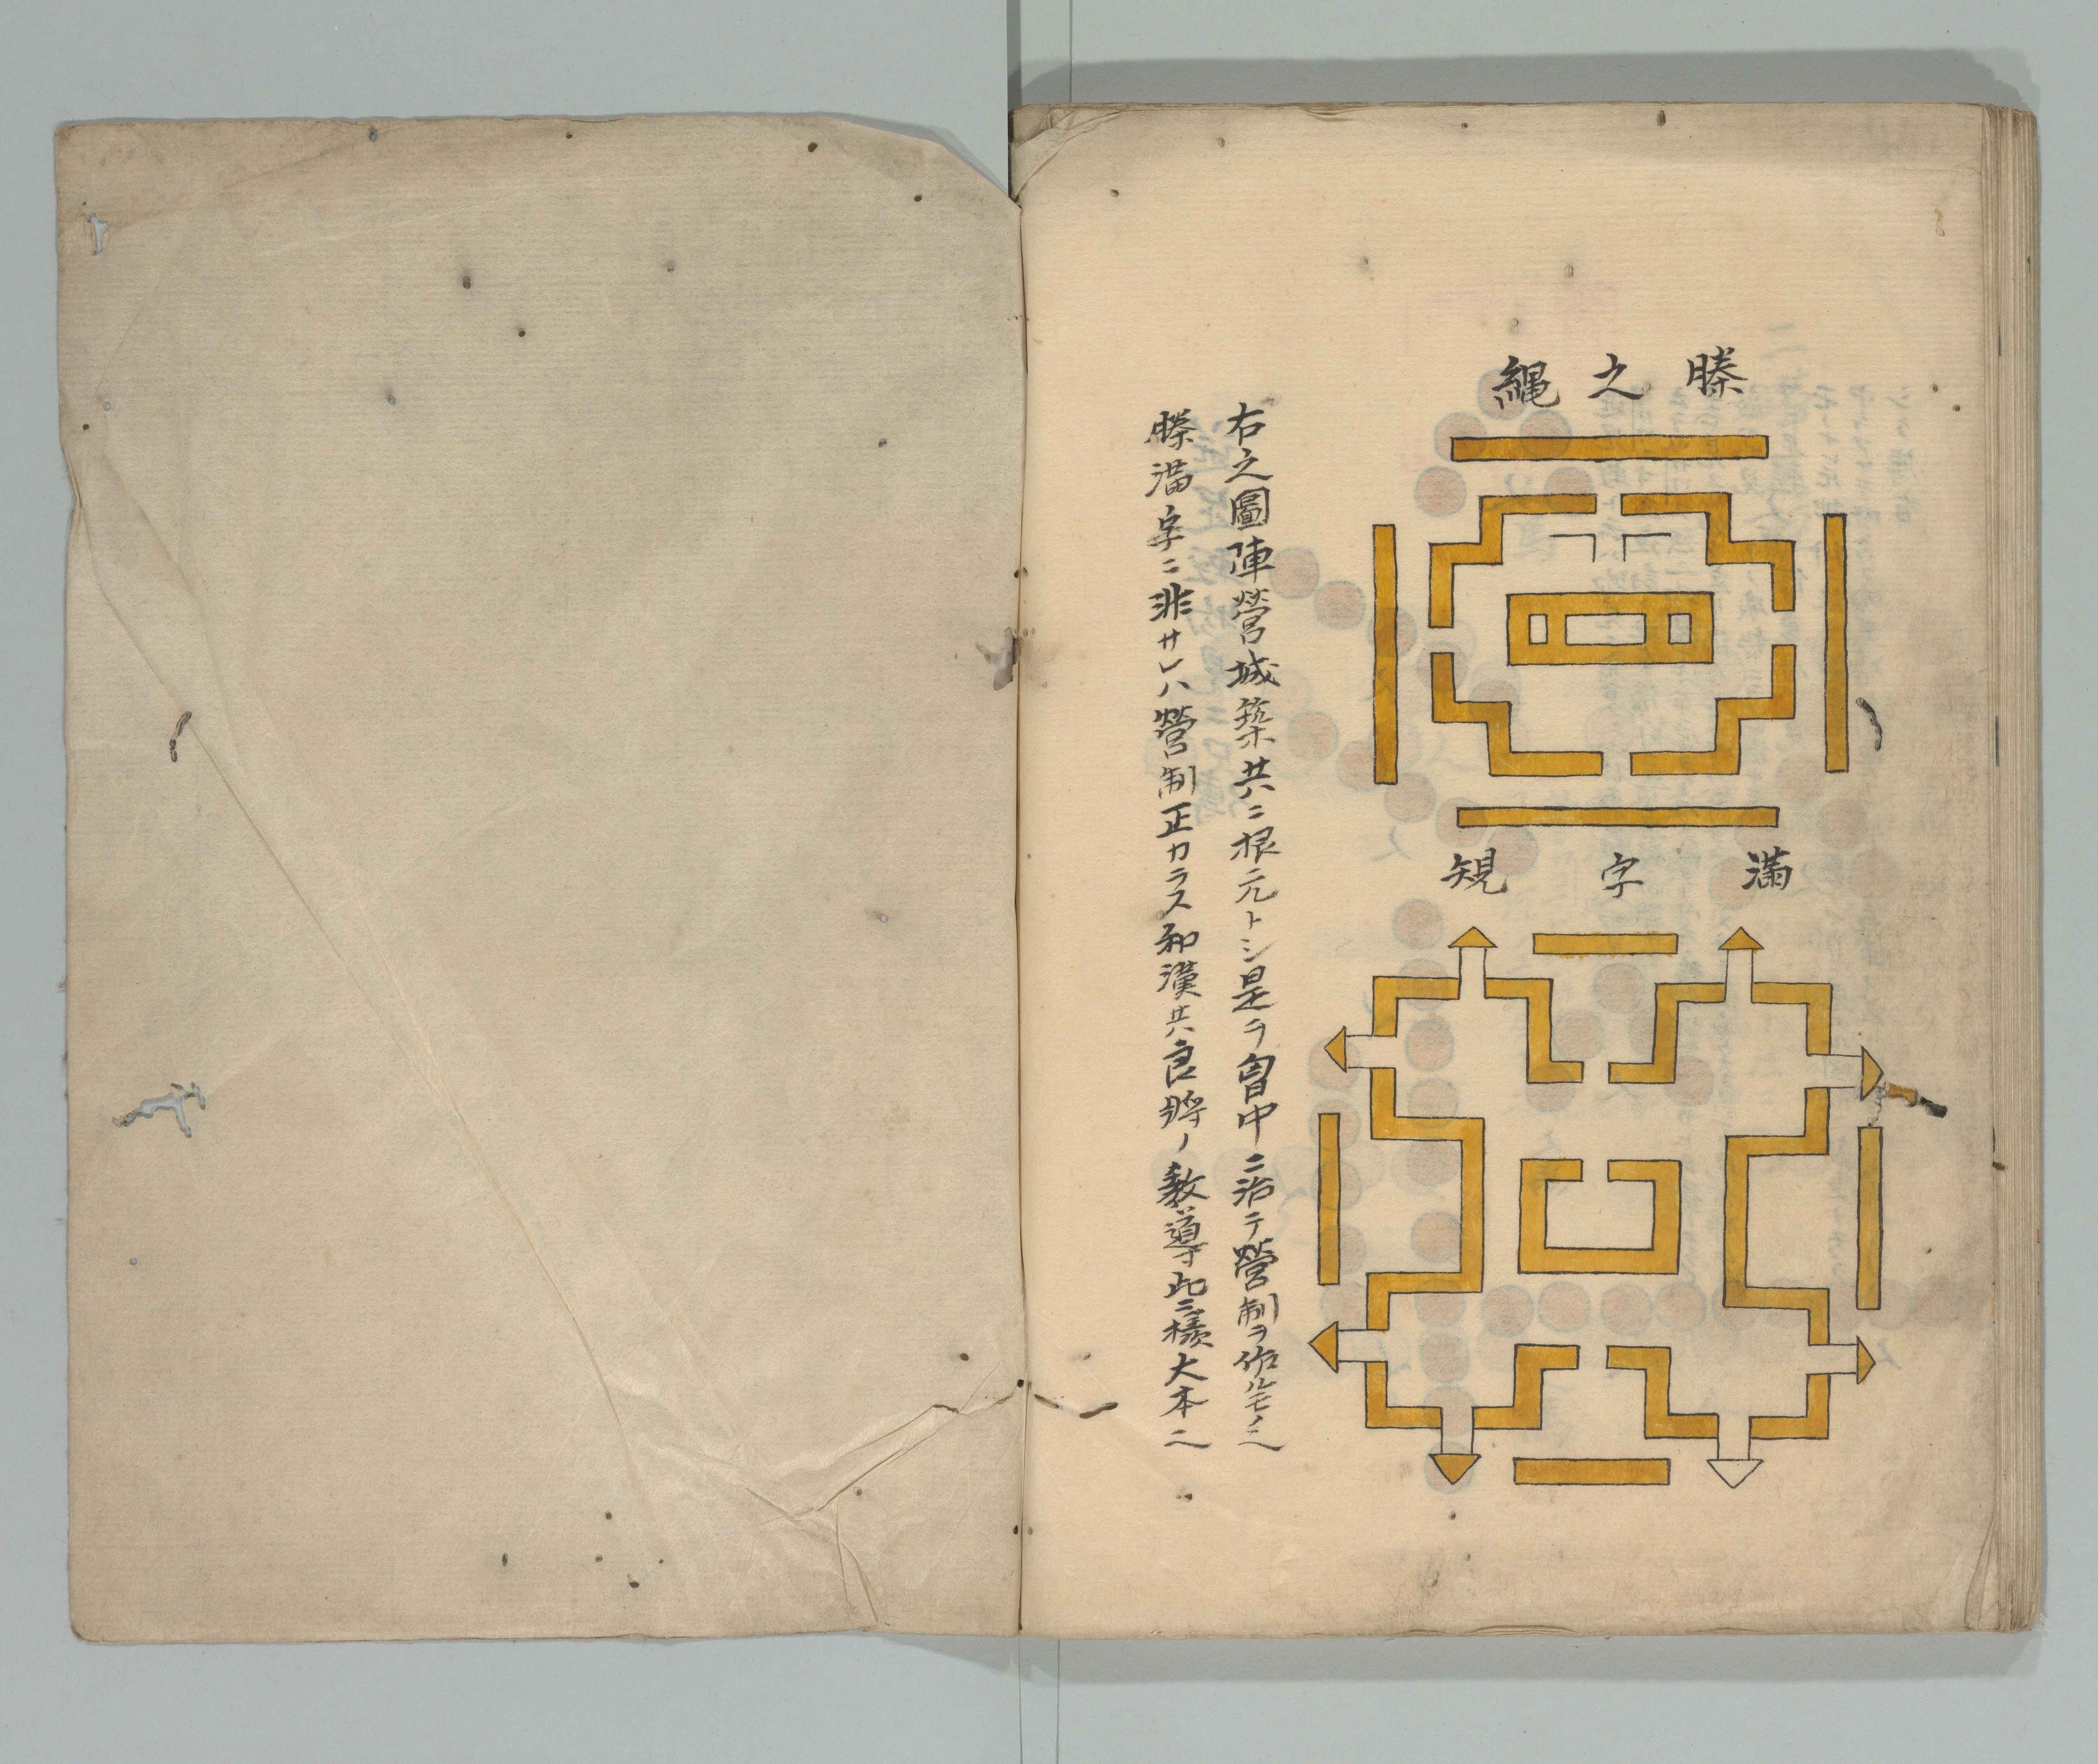 縢之縄
満字規
右之圖陣營城築共ニ根元トシ是ヲ胷中ニ治テ營制ヲ作ルモノ也
縢満字ニ非サレハ營制正カラス和漢共良将ノ教導此二樣大本也